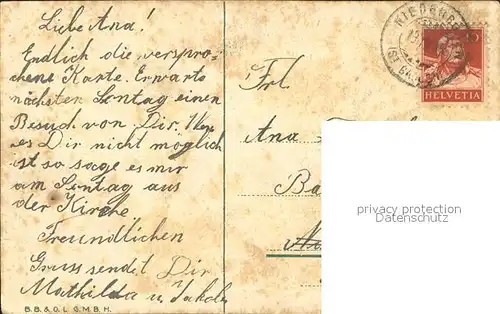 Liebe Ana!
Endlich die verspro-
chene Karte. Erwarte
nächsten Sontag einen
Besuch von Dir. Wen
es Dir nicht möglich
ist so sage es mir
am Sontag aus
der Kirche
Freundlichen
Gruss sendet Dir
Mathilda u. Jakob
B. B. & O. L. G. M. B. H.
Frl
Ana
Ba
HELVETIA
privacy protection
Datenschutz